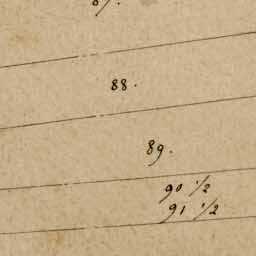 87.
88.
89.
90 1/2
91 1/2